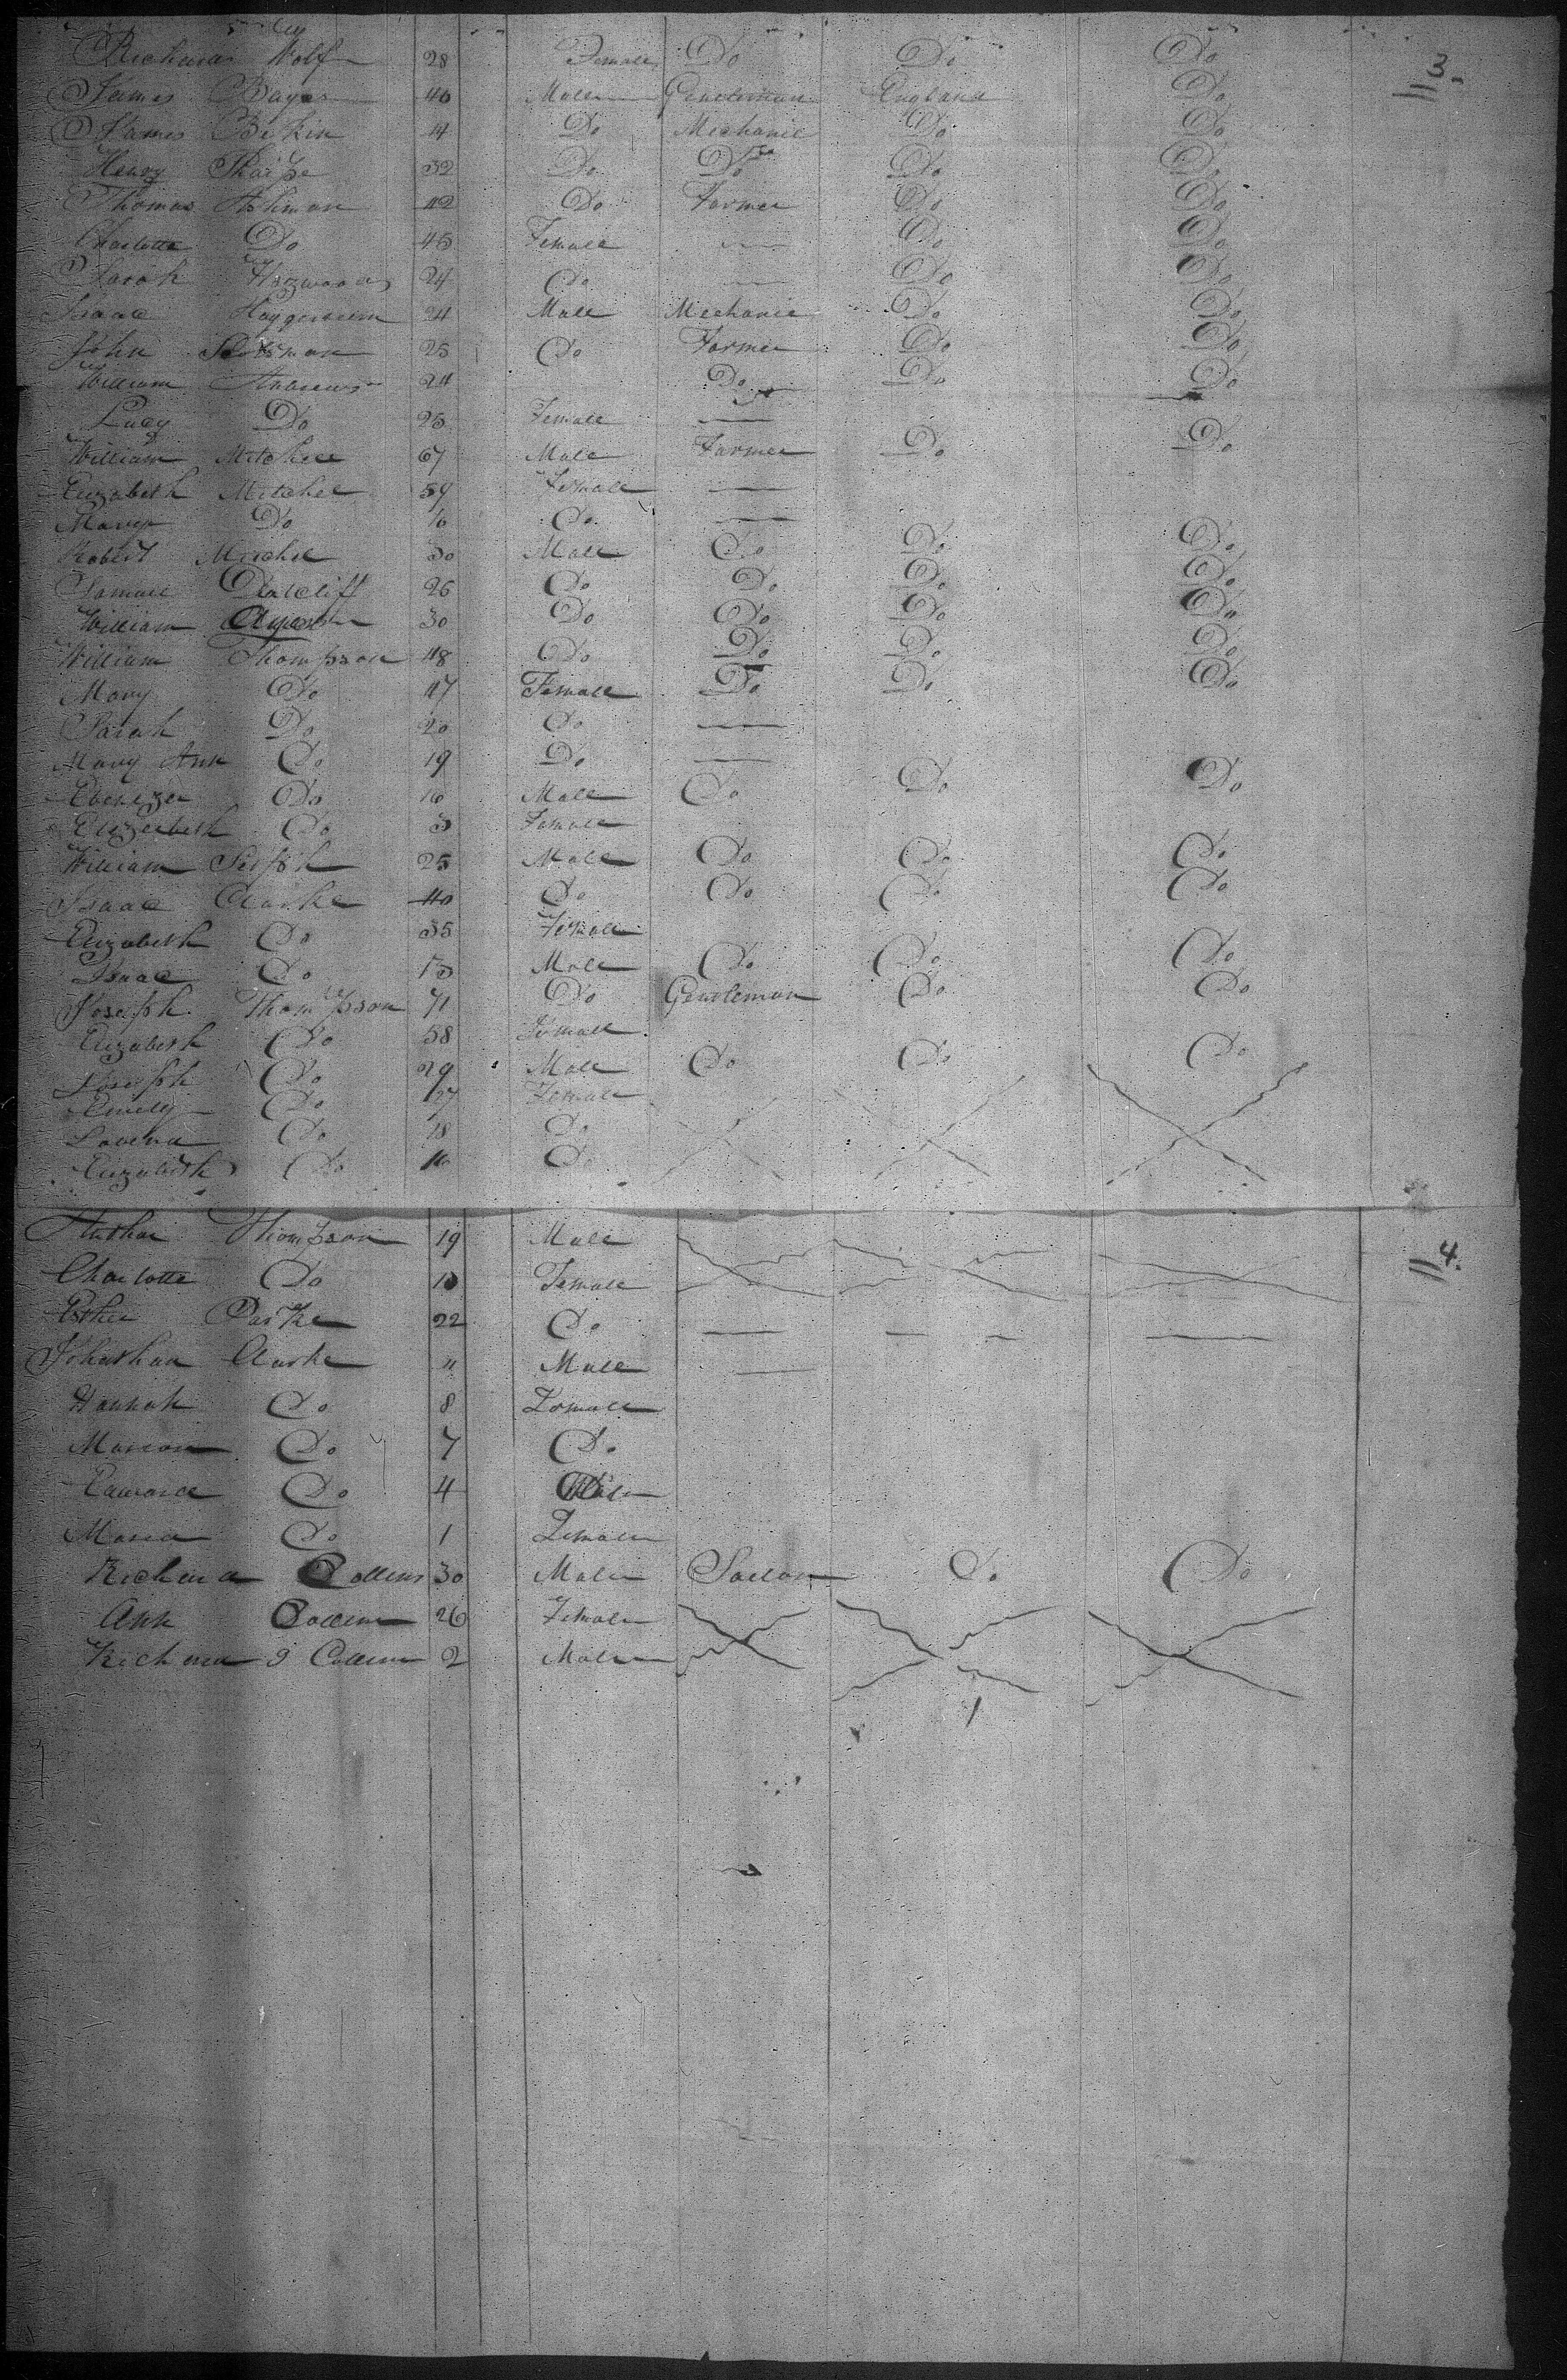 Wolf 28 Female Do Do Do 3.
James Bayes 40 Male Gentleman England Do
James Do Mechanic Do Do
Henry Tharpe 32 Do Do Do Do
Thomas Ashman 42 Do Farmer Do Do
Charlotte Do 45 Female — Do Do
Sarah 24 Do — Do Do
Isaac 24 Male Mechanic Do Do
John 25 Do Farmer Do Do
William Andrews 24 Do Do Do
Lucy Do 25 Female —
William Mitchell 67 Male Farmer Do Do
Elizabeth Mitchel 59 Female —
Mary Do 16 Do —
Robert Mitchel 30 Male Do Do Do
Samuel 26 Do Do Do Do
William 30 Do Do Do Do
William Thompson 48 Do Do Do Do
Mary Do 47 Female Do Do Do
Sarah Do 20 Do —
Mary Ann Do 19 Do —
Ebenezer Do 16 Male Do Do Do
Elizerbeth Do 3 Female
William 25 Male Do Do Do
Isaac Clarke 40 Do Do Do Do
Elizabeth Do 35 Female
Isaac Do Male Do Do Do
Joseph Thompson 71 Do Gentleman Do Do
Elizabeth Do 58 Female
Joseph Do 29 Male Do Do Do
Emely Do 27 Female
Lovena Do 18 Do
Elizabeth Do 16 Do
Arthur Thompson 19 Male 4.
Charlotte Do 10 Female
Esther Parke 22 Do — — — —
Johnathan Clarke 11 Male —
Hannah Do 8 Female
Marion Do 7 Do
Edward Do 4 Male
Maria Do 1 Female
Richard Collens 30 Male Sailor Do Do
Ann Collens 26 Female
Richard J Collens 2 Male